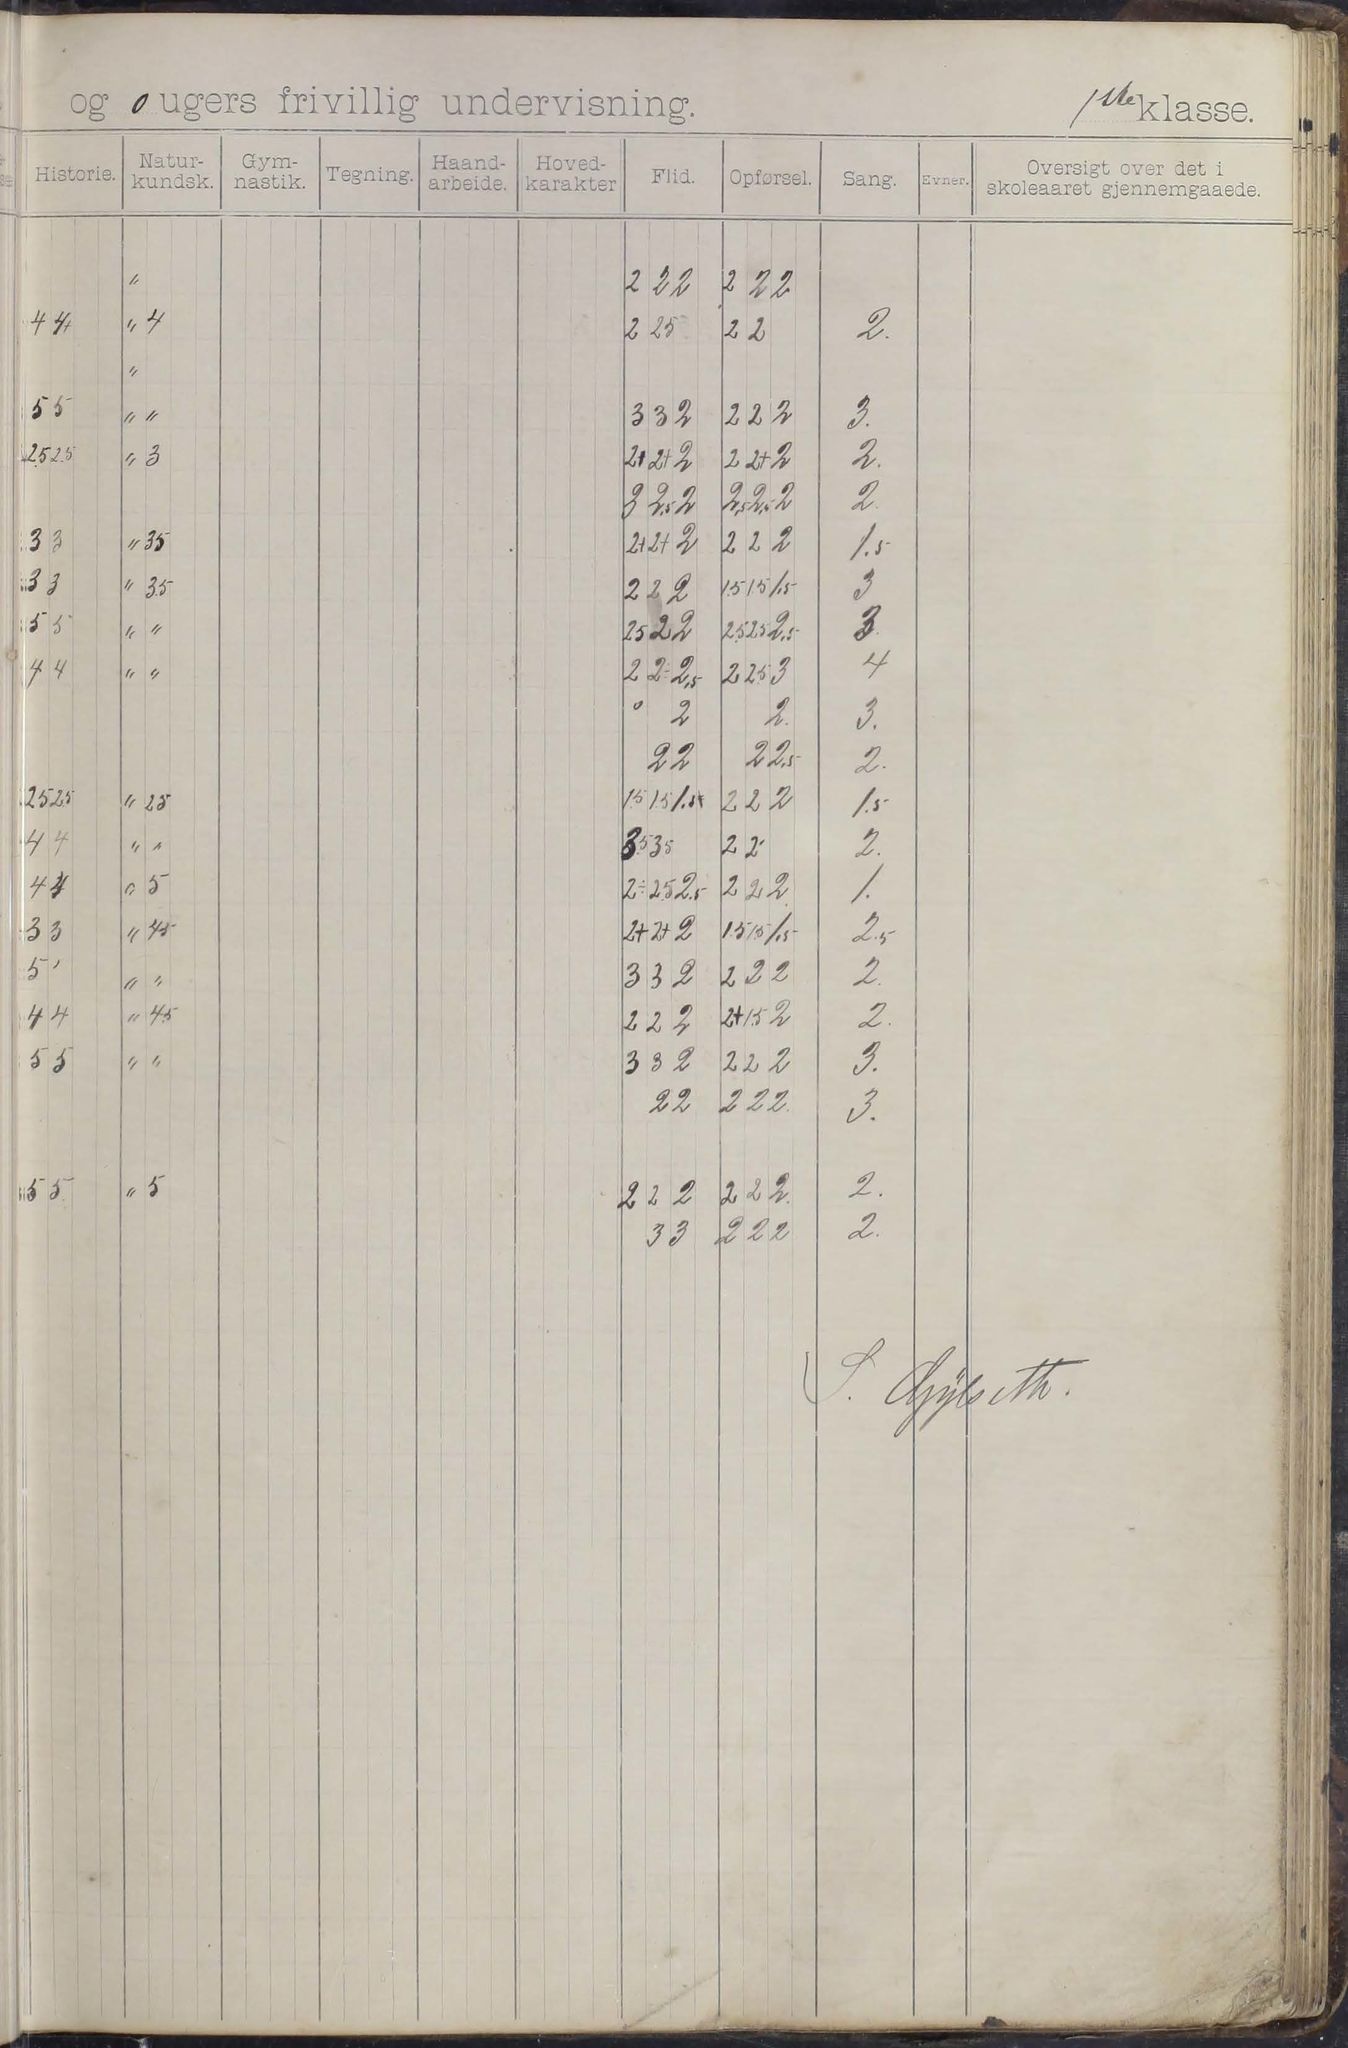 og 0 ugers frivillig undervisning. 1ste klasse.
Historie. Natur-kundsk. Gym-nastik. Tegning. Haand-arbeide. Hoved-karakter Flid. Opførsel. Sang. Evner. Oversigt over det i skoleaaret gjennemgaaede.
" 2 2 2 2 2 2
4 4 " 4 2 25 2 2 2.
"
5 5 " " 3 3 2 2 2 2 3.
25 25 " 3 2+ 2+ 2 2 2+ 2 2.
3 2,5 2 2,5 2,5 2 2.
3 3 " 35 2+ 2+ 2 2 2 2 1.5
3 3 " 3.5 2 2 2 15 15 1,5 3
5 5 " " 25 2 2 25 25 2,5 3.
4 4 " " 2 2÷ 2,5 2 25 3 4
° 2 2. 3.
2 2 2 2,5 2.
25 25 " 25 15 15 1.5+ 2 2 2 1.5
4 4 " " 35 35 2 2 2.
4 4 " 5 2÷ 25 2.5 2 2 2 1.
3 3 " 45 2+ 2+ 2 15 15 1,5 2.5
5 ' " " 3 3 2 2 2 2 2.
4 4 " 45 2 2 2 2+ 15 2 2.
5 5 " " 3 3 2 2 2 2 3.
2 2 2 2 2. 3.
5 5 " 5 2 2 2 2 2 2. 2.
3 3 2 2 2 2.
S.